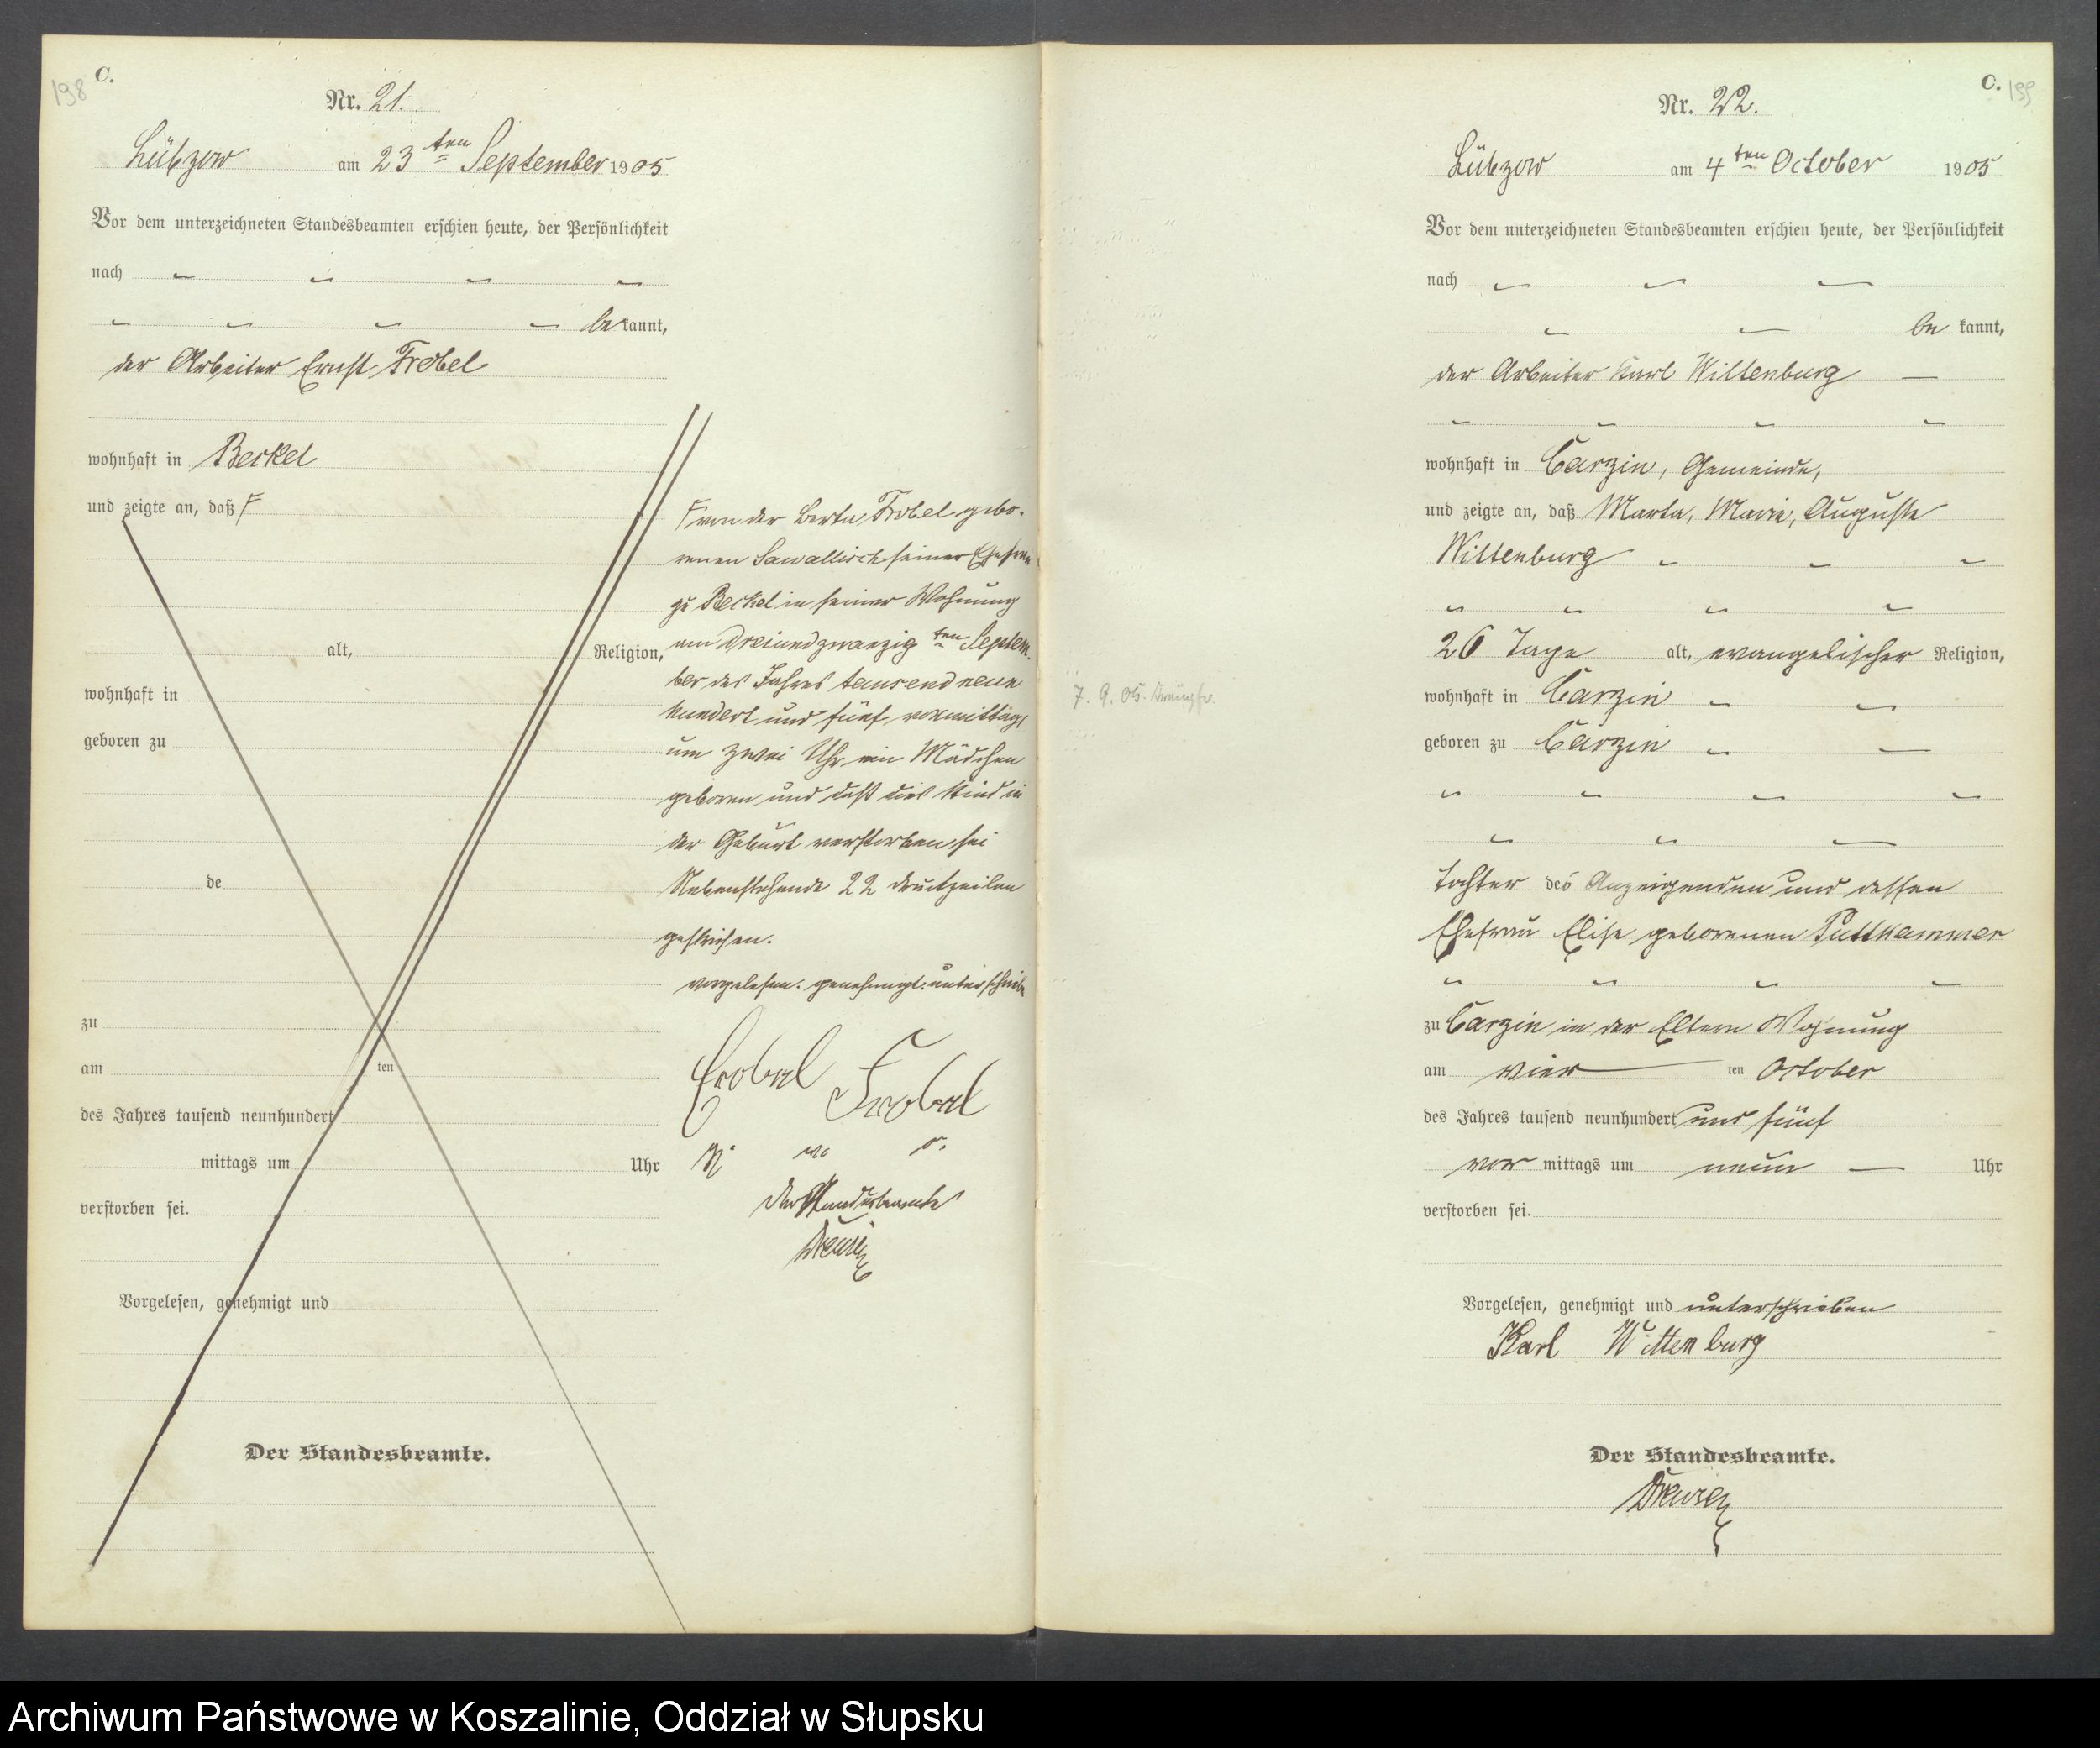 198
C.
Nr. 21.
Lübzow am 23ten September 1905
Vor dem unterzeichneten Standesbeamten erschien heute, der Persönlichkeit
nach
be kannt,
der Arbeiter Ernst Frobel
wohnhaft in Beckel
und zeigte an, daß F
F von der Berta Frobel gebo-
renen Sawallisch seiner Ehefrau
zu Beckel in seiner Wohnung
am Dreiundzwanzigten Septem-
ber des Jahres tausend neun
hundert und fünf vormittags
um zwei Uhr ein Mädchen
geboren und daß dies Kind in
der Geburt verstorben sei
Nebenstehende 22 Druckzeilen
gestrichen.
vorgelesen. genehmigt. unterschrieben
Frobel
Der Standesbeamte
alt, Religion,
wohnhaft in
geboren zu
de
zu
am ten
des Jahres tausend neunhundert
mittags um Uhr
verstorben sei.
Vorgelesen, genehmigt und
Der Standesbeamte.
C. 199
Nr. 22.
Lübzow am 4ten October 1905
Vor dem unterzeichneten Standesbeamten erschien heute, der Persönlichkeit
nach
be kannt,
der Arbeiter Karl Wittenburg
wohnhaft in Carzin, Gemeinde,
und zeigte an, daß Marta, Marie, Auguste
Wittenburg
26 Tage alt, evangelischer Religion,
7. 9. 05. Krämpfe
wohnhaft in Carzin
geboren zu Carzin
Tochter des Anzeigenden und dessen
Ehefrau Elise geborenen Puttkammer
zu Carzin in der Eltern Wohnung
am vier ten October
des Jahres tausend neunhundert und fünf
vor mittags um neun Uhr
verstorben sei.
Vorgelesen, genehmigt und unterschrieben
Karl Wittenburg
Der Standesbeamte.
Archiwum Państwowe w Koszalinie, Oddział w Słupsku